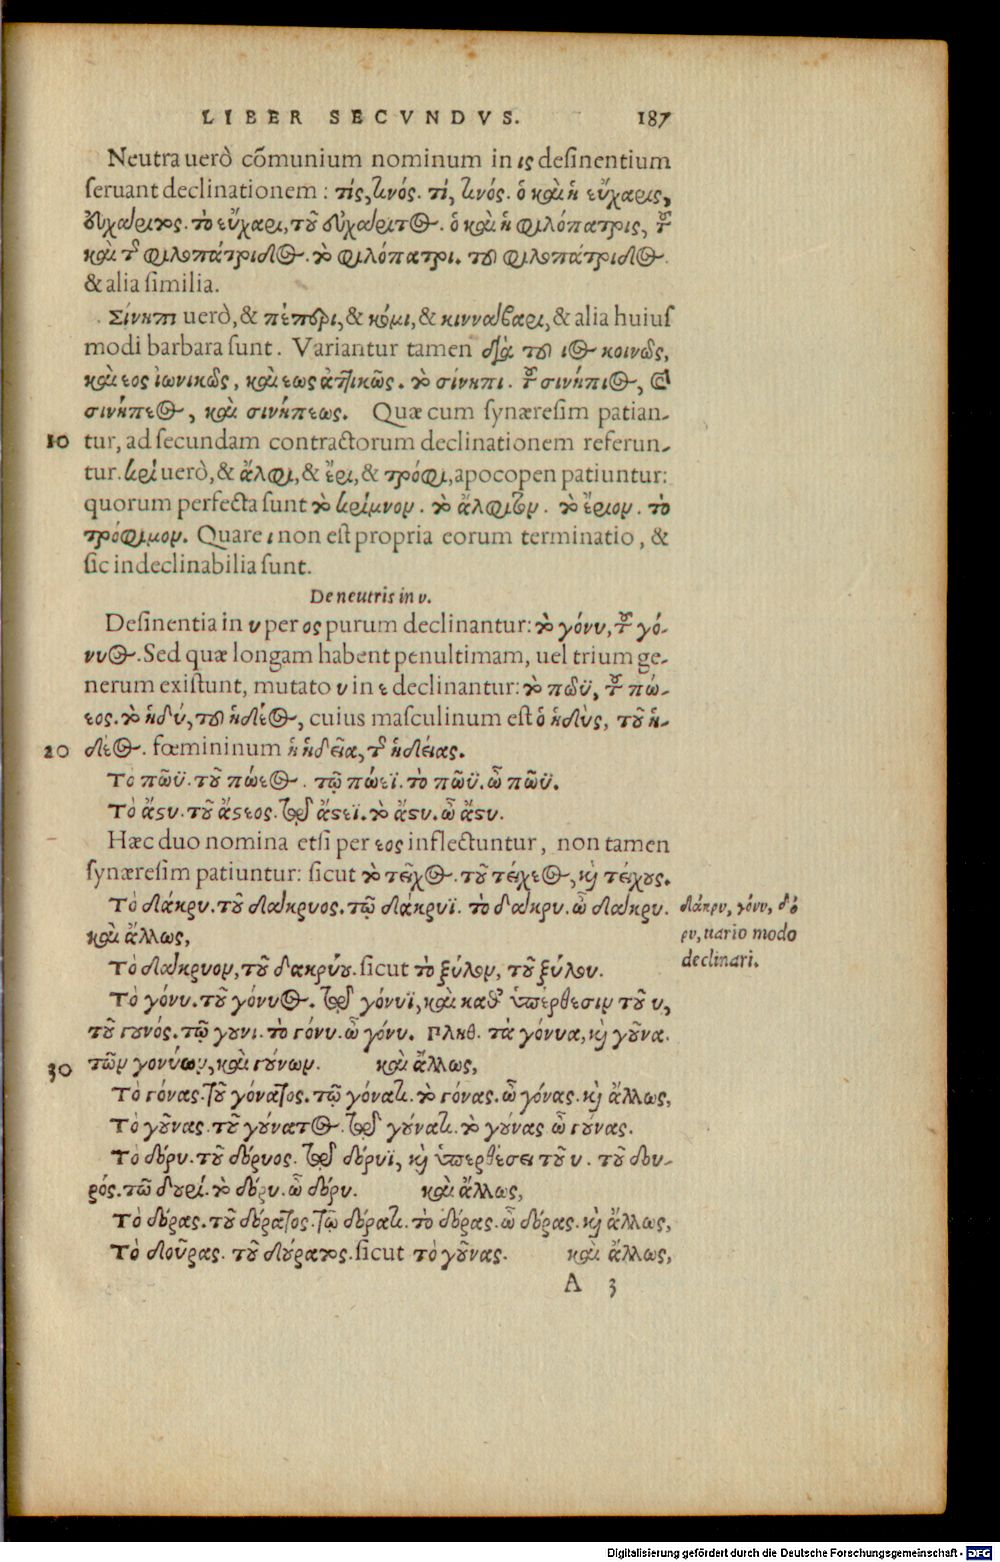 LIBER SECVNDVS. 187
Neutra uerò cōmunium nominum in ις desinentium
seruant declinationem : τίς, τινός. τί, τινός. ὁ καὶ ἡ εὔχαρις,
εὐχάριτος. τὸ εὔχαρι, τοῦ εὐχάριτος. ὁ καὶ ἡ φιλόπατρις, τοῦ
καὶ τῆς φιλοπάτριδος. τὸ φιλόπατρι. τοῦ φιλοπάτριδος.
& alia similia.
Σίνηπι uerò, & πέπερι, & κόμι, & κιννάβαρι, & alia huius
modi barbara sunt. Variantur tamen διὰ τοῦ ιος κοινῶς,
καὶ εος ἰωνικῶς, καὶ εως ἀττικῶς. τὸ σίνηπι. τοῦ σινήπιος, &
σινήπεος, καὶ σινήπεως. Quæ cum synæresim patian-
10 tur, ad secundam contractorum declinationem referun-
tur. κρί uerò, & ἄλφι, & ἔρι, & τρόφι, apocopen patiuntur:
quorum perfecta sunt τὸ κρίμνον. τὸ ἄλφιτον. τὸ ἔριον. τὸ
τρόφιμον. Quare ι non est propria eorum terminatio, &
sic indeclinabilia sunt.
De neutris in υ.
Desinentia in υ per ος purum declinantur: τὸ γόνυ, τοῦ γό-
νυος. Sed quæ longam habent penultimam, uel trium ge-
nerum existunt, mutato υ in ε declinantur: τὸ πῶϋ, τοῦ πώ-
εος. τὸ ἡδύ, τοῦ ἡδέος, cuius masculinum est ὁ ἡδὺς, τοῦ ἡ-
20 δέος. fœmininum ἡ ἡδεῖα, τῆς ἡδείας.
Τὸ πῶϋ. τοῦ πώεος. τῷ πώεϊ. τὸ πῶϋ. ὦ πῶϋ.
Τὸ ἄστυ. τοῦ ἄστεος. τῷ ἄστεϊ. τὸ ἄστυ. ὦ ἄστυ.
Hæc duo nomina etsi per εος inflectuntur, non tamen
synæresim patiuntur: sicut τὸ τεῖχος. τοῦ τείχεος, κὶ τείχους.
Τὸ δάκρυ. τοῦ δάκρυος. τῷ δάκρυϊ. τὸ δάκρυ. ὦ δάκρυ.
καὶ ἄλλως,
δάκρυ, γόνυ, δό
ρυ, uario modo
declinari.
Τὸ δάκρυον, τοῦ δακρύου. sicut τὸ ξύλον, τοῦ ξύλου.
Τὸ γόνυ. τοῦ γόνυος. τῷ γόνυϊ, καὶ καθ' ὑπέρθεσιν τοῦ υ,
τοῦ γουνός. τῷ γουνι. τὸ γόνυ. ὦ γόνυ. Πληθ. τὰ γόνυα, κὶ γοῦνα.
30 τῶν γονύων, καὶ γούνων. καὶ ἄλλως,
Τὸ γόνας. τοῦ γόνατος. τῷ γόνατι. τὸ γόνας. ὦ γόνας. κὶ ἄλλως,
Τὸ γοῦνας. τοῦ γούνατος. τῷ γούνατι. τὸ γούνας ὦ γούνας.
Τὸ δόρυ. τοῦ δόρυος. τῷ δόρυϊ, κὶ ὑπερθέσει τοῦ υ. τοῦ δου-
ρός. τῶ δουρί. τὸ δόρυ. ὦ δόρυ. καὶ ἄλλως,
Τὸ δόρας. τοῦ δόρατος. τῷ δόρατι. τὸ δόρας. ὦ δόρας. κὶ ἄλλως,
Τὸ δοῦρας. τοῦ δούρατος. sicut τὸ γοῦνας. καὶ ἄλλως,
A 3
Digitalisierung gefördert durch die Deutsche Forschungsgemeinschaft - DFG